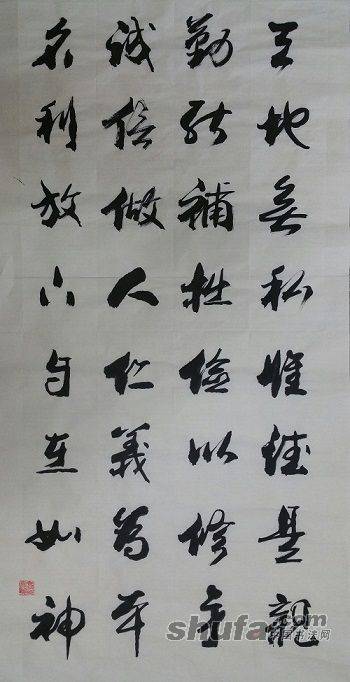 天地無私唯德是親
勤能補拙儉以修金
誠信做人仁義為本
名利放下自在如神
shufa.com
中国书法网